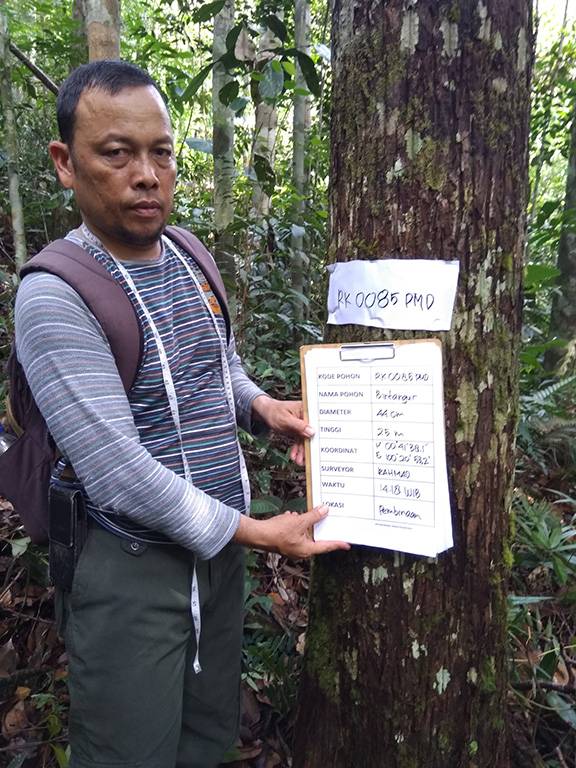 RK 0085 PMD
KODE POHON RK 0085 PMD
NAMA POHON Bintangur
DIAMETER 44 cm
TINGGI 25 m
KOORDINAT N 00°41'38.1"
E 100°20'53.2"
SURVEYOR RAHMAD
WAKTU 14.18 WIB
LOKASI Pembinaan